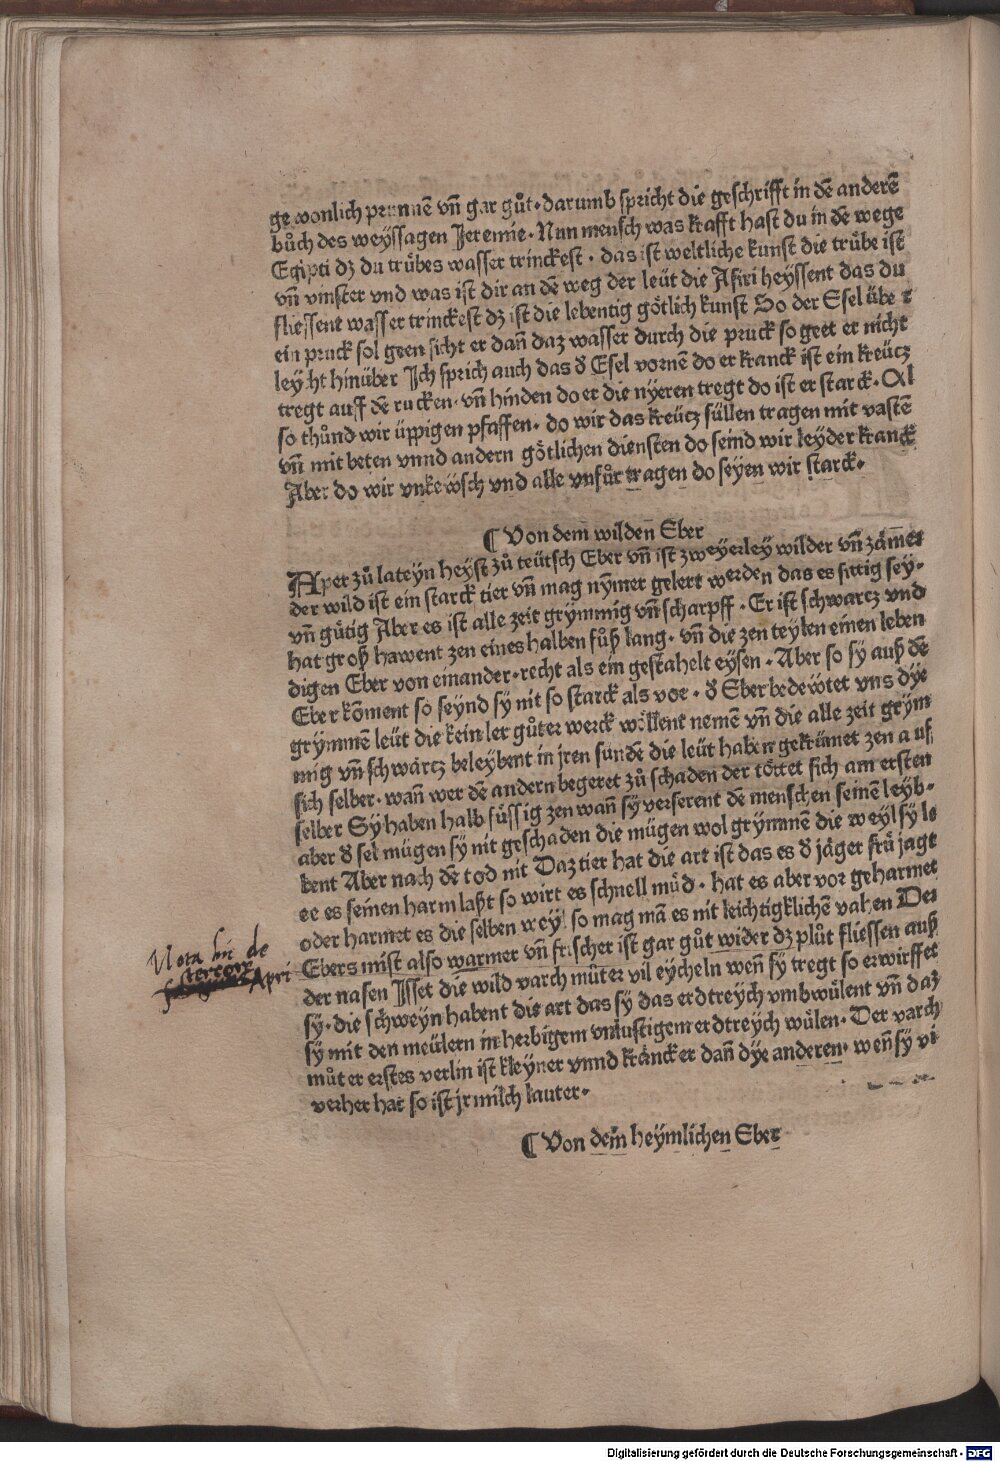 ge wonlich prunnē vn̄ gar gůt· darumb spricht die geschrifft in dē anderē
bůch des weyssagen Jeremie· Nun mensch was krafft hast du in dē wege
Egipti dz du trůbes wasser trinckest · das ist weltliche kunst die trůbe ist
vn̄ vinster vnd was ist dir an dē weg der leüt die Asiri heyssent das du
fliessent wasser trinckest dz ist die lebentig götlich kunst So der Esel über
ein pruck sol geen sicht er dañ daz wasser durch die pruck so geet er nicht
leycht hinüber Ich sprich auch das d̕ Esel vornē do er kranck ist ein kreütz
tregt auff dē rucken· vn̄ hinden do er die nyeren tregt do ist er starck· Al
so thůnd wir üppigen pfaffen· do wir das kreütz süllen tragen mit vastē
vn̄ mit beten vnnd andern götlichen diensten do seind wir leyder kranck
Aber do wir vnkeẅsch vnd alle vnfůr tragen do seyen wir starck·
¶ Von dem wilden Eber
Aper zů lateyn heyst zů teütsch Eber vn̄ ist zweyerley wilder vn̄ zämer
der wild ist ein starck tier vn̄ mag nymer gelert werden das es sittig sey·
vn̄ gůtig Aber es ist alle zeit grymmig vn̄ scharpff · Er ist schwartz vnd
hat groß hawent zen eines halben fůß lang· vn̄ die zen teylen einen leben
digen Eber von einander· recht als ein gestahelt eysen · Aber so sy auß dē
Eber kōment so seynd sy nit so starck als vor · d̕ Eber bedeẅtet vns dye
grymmē leüt die keinler gůter werck wöllent nemē vn̄ die alle zeit grym
mig vn̄ schwärtz beleybent in jren sunden die leüt haben gekrümet zen auf
sich selber· wañ wer dē andern begeret zů schaden der töttet sich am ersten
selber Sy haben halb füssig zen wañ sy verserent dē menschen seinē leyb·
aber d̕ sel mügen sy nit geschaden die mügen wol grymmē die weyl sy le
bent Aber nach dē tod nit Daz tier hat die art ist das es d̕ jäger frü jagt
ee es seinen harm laßt so wirt es schnell müd · hat es aber vor geharmet
oder harmet es die selben weyl so mag mā es nit leichtigklichē vahen Des
Ebers mist also warmer vn̄ frischer ist gar gůt wider dz plůt fliessen auß
der nasen Isset die wild varch můter vil eycheln weñ sy tregt so erwirffet
sy· die schweyn habent die art das sy das erdtreych vmbwůlent vn̄ daz
sy mit den meülern in herbigem vnlustigem erdtreych wůlen· Der varch
můter erstes verlin ist kleyner vnnd kräncker dañ dye anderen· weñ sy vi
verher hat so ist jr milch lauter·
¶ Von dem heymlichen Eber
Nota hic de
stercore
Apri
Digitalisierung gefördert durch die Deutsche Forschungsgemeinschaft - DFG